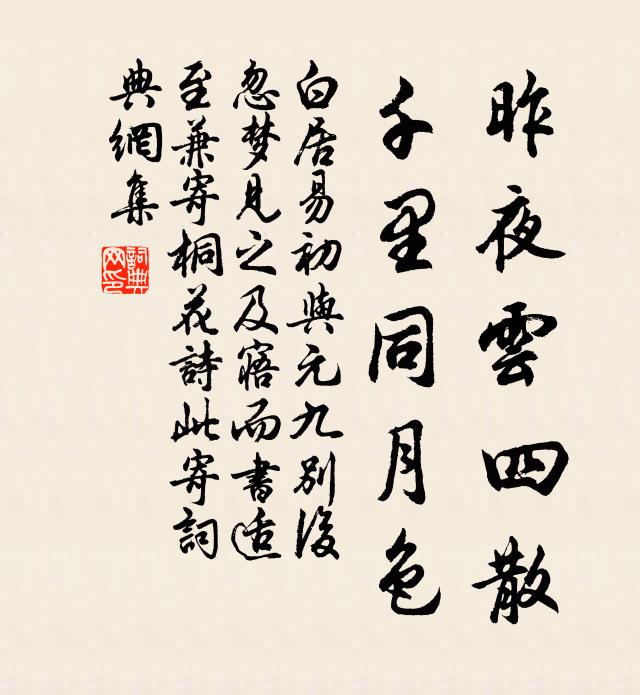 昨夜雲四散
千里同月色
白居易初與元九別後
忽梦見之及寤而書适
至兼寄桐花詩此寄詞
典網集
詞典
网印